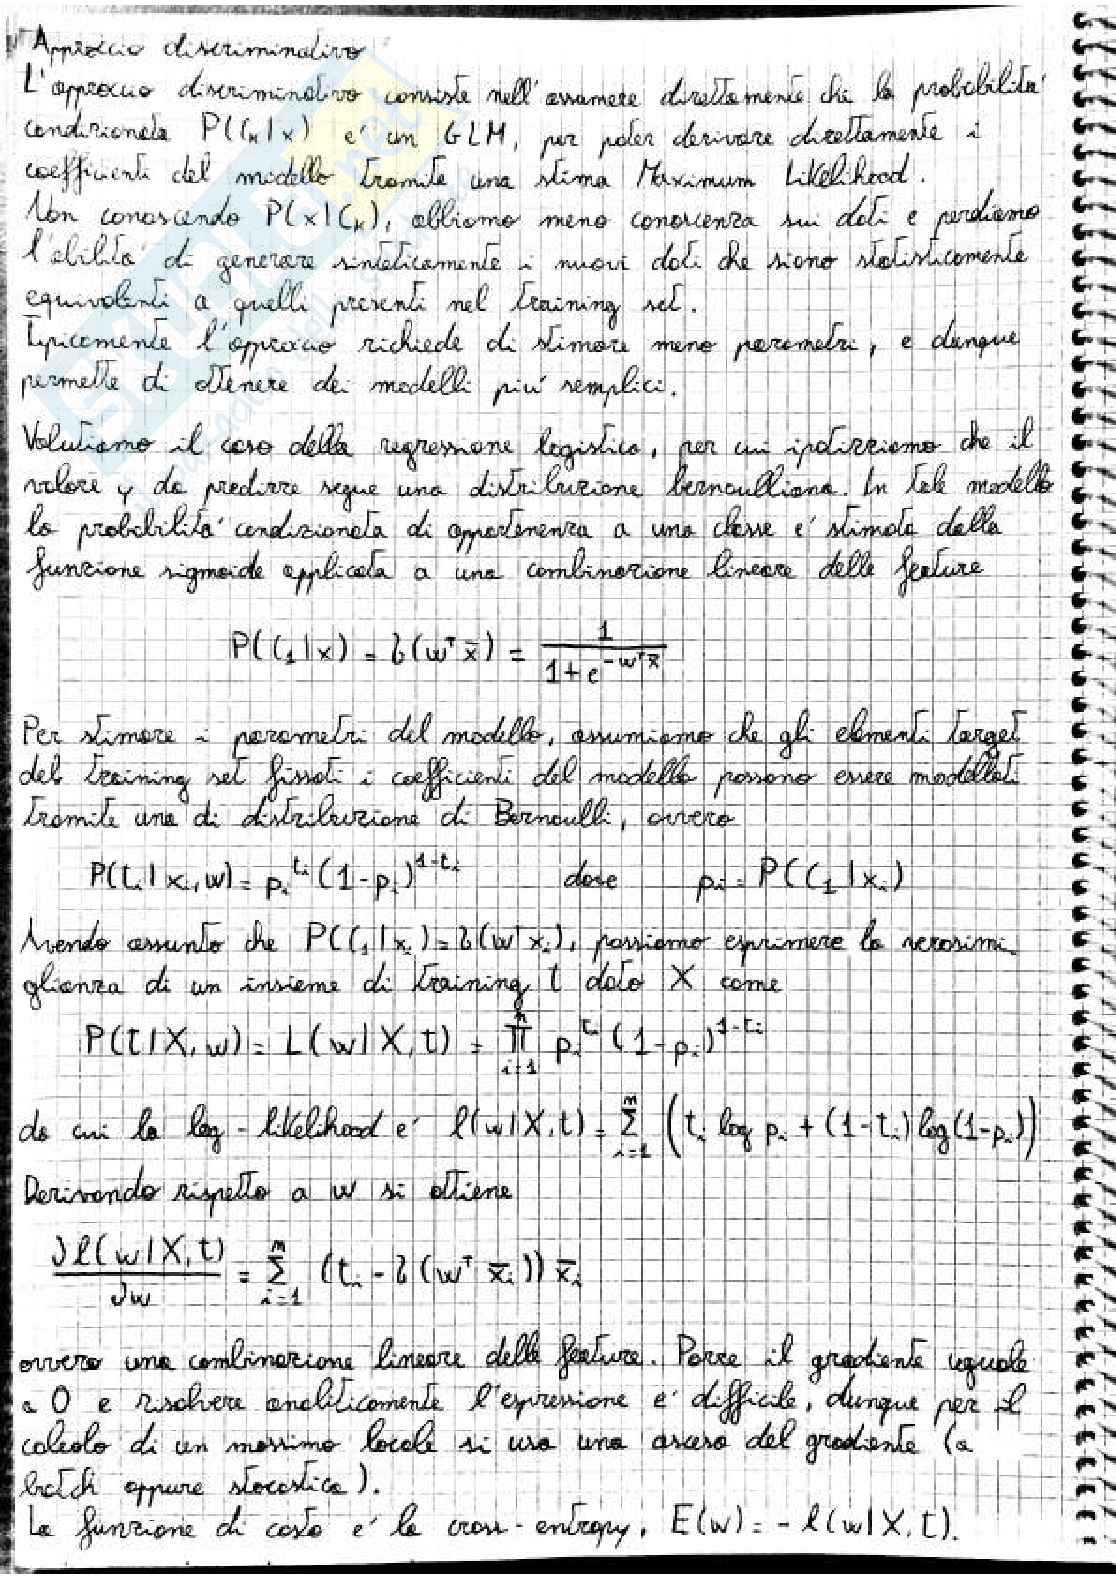 Approccio discriminativo
L'approccio discriminativo consiste nell'assumere direttamente che la probabilità
condizionata P(Cₖ|x) è un GLM, per poter derivare direttamente i
coefficienti del modello tramite una stima Maximum Likelihood.
Non conoscendo P(x|Cₖ), abbiamo meno conoscenza sui dati e perdiamo
l'abilità di generare sinteticamente i nuovi dati che siano statisticamente
equivalenti a quelli presenti nel training set.
Tipicamente l'approccio richiede di stimare meno parametri, e dunque
permette di ottenere dei modelli più semplici.
Valutiamo il caso della regressione logistica, per cui ipotizziamo che il
valore y da predirre segue una distribuzione bernoulliana. In tale modello
la probabilità condizionata di appartenenza a una classe è stimata dalla
funzione sigmoide applicata a una combinazione lineare delle feature
P(C₁|x) = σ(wᵀx̄) = 1/(1+e^(-wᵀx̄))
Per stimare i parametri del modello, assumiamo che gli elementi target
del training set fissati i coefficienti del modello possono essere modellati
tramite una di distribuzione di Bernoulli, ovvero
P(tᵢ|xᵢ,w) = pᵢ^tᵢ (1-pᵢ)^(1-tᵢ) dove pᵢ = P(C₁|xᵢ)
Avendo assunto che P(C₁|xᵢ) = σ(wᵀxᵢ), possiamo esprimere la verosimi
glianza di un insieme di training t dato X come
P(t|X,w) = L(w|X,t) = ∏ᵢ₌₁ⁿ pᵢ^tᵢ (1-pᵢ)^(1-tᵢ)
da cui la log-likelihood è l(w|X,t) = ∑ᵢ₌₁ⁿ (tᵢ log pᵢ + (1-tᵢ) log(1-pᵢ))
Derivando rispetto a w si ottiene
∂l(w|X,t)/∂w = ∑ᵢ₌₁ⁿ (tᵢ - σ(wᵀx̄ᵢ)) x̄ᵢ
ovvero una combinazione lineare delle feature. Porre il gradiente uguale
a 0 e risolvere analiticamente l'espressione è difficile, dunque per il
calcolo di un massimo locale si usa una ascesa del gradiente (a
batch oppure stocastica).
La funzione di costo è la cross-entropy, E(w) = - l(w|X,t).